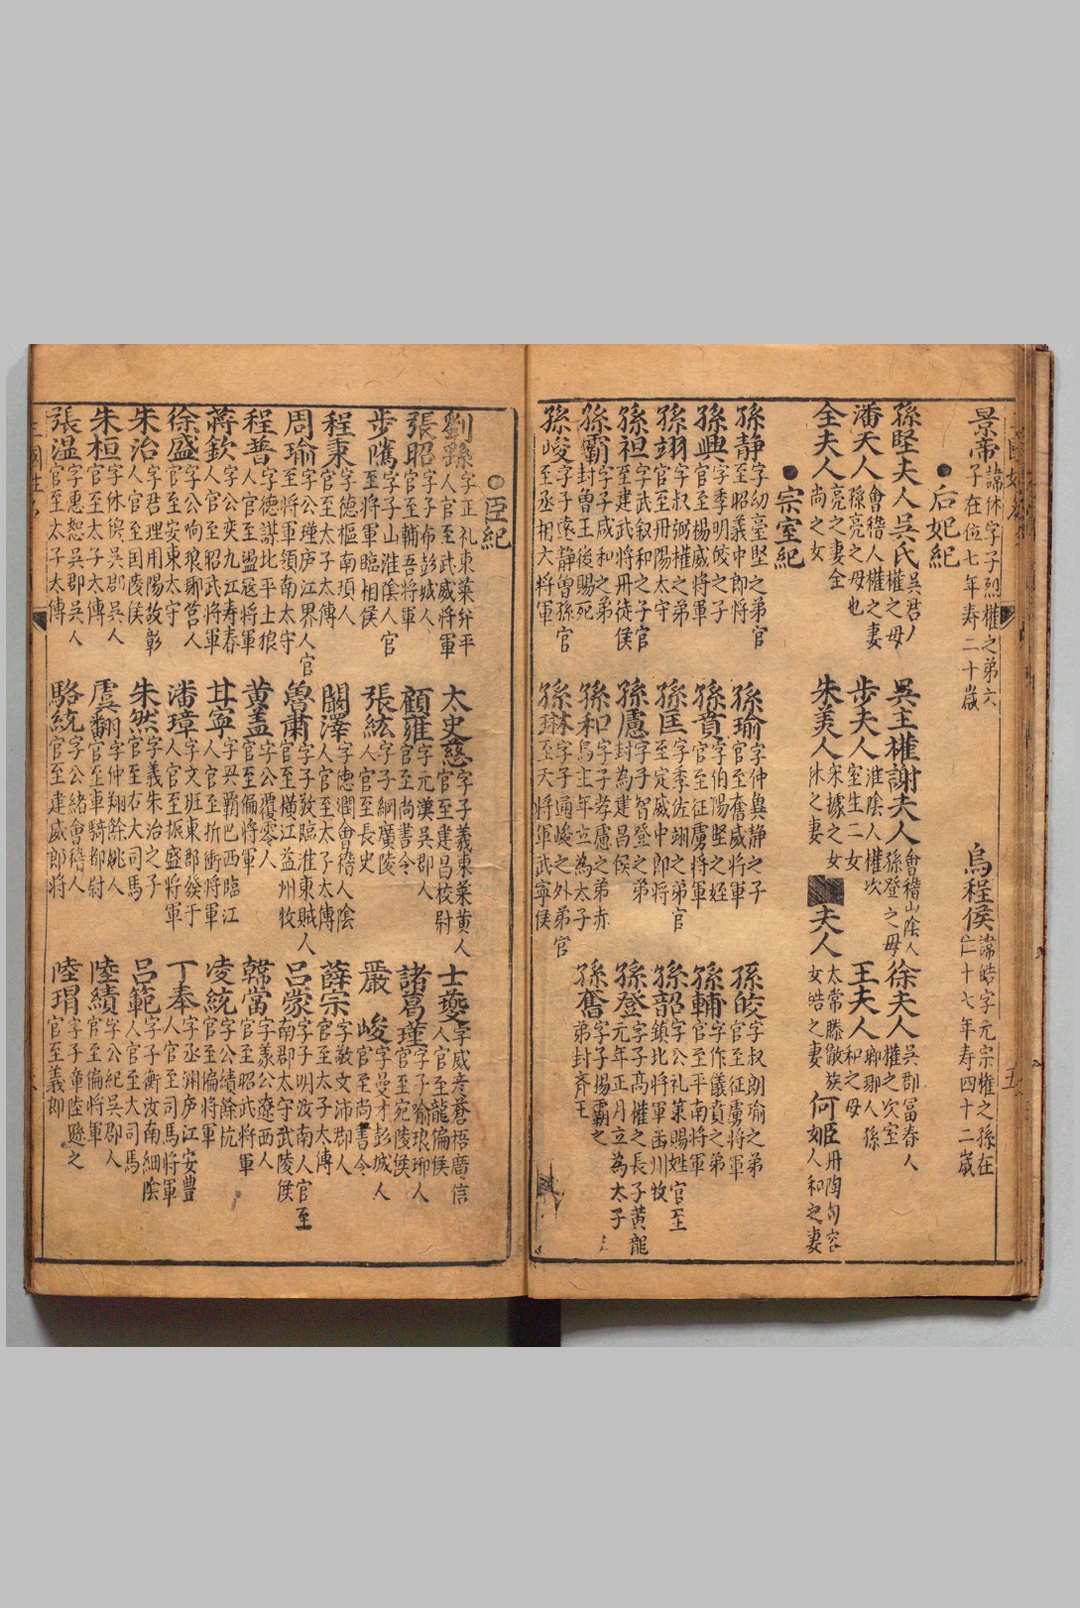 景帝 諱休字子烈權之弟六子在位七年寿二十歲
烏程侯 諱皓字元宗權之孫在位十七年寿四十二歲
●后妃紀
孫堅夫人吳氏 吳君人權之母
吳主權謝夫人 會稽山陰人孫登之母
徐夫人 吳郡富春人權之次室
潘夫人 會稽人權之妻孫亮之母也
步夫人 淮陰人權次室生二女
王夫人 瑯琊人孫和之母
全夫人 亮之妻全尚之女
朱美人 朱據之女休之妻
夫人 太常滕敵族女皓之妻
何姬 丹陽句容人和之妻
●宗室紀
孫静 字幼臺堅之弟官至昭義中郎将
孫瑜 字仲異静之子官至奮威将軍
孫皎 字叔朗瑜之弟官至征虜将軍
孫興 字季明皎之子官至楊威将軍
孫賁 字伯陽堅之姪官至征虜将軍
孫輔 字作儀賁之弟官至平南将軍
孫翊 字叔弼權之弟官至丹陽太守
孫匡 字季佐翊之弟官至定威中郎将
孫韶 字公礼策賜姓官至鎮北将軍幽川牧
孫袒 字武叙和之子官至建武将丹徒侯
孫慮 字子智登之弟封為建昌侯
孫登 字子高權之長子黄龍元年正月立為太子
孫霸 字子咸和之弟封曽王後賜死
孫和 字子孝慮之弟赤烏主年立為太子
孫奮 字子揚霸之弟封斉王
孫峻 字子遠静曽孫官至丞相大将軍
孫琳 字子通峻之外弟官至天将軍武寧侯
●臣紀
劉繇 字正礼東萊牟平人官至武威将軍
太史慈 字子義東萊黄人官至建昌校尉
士燮 字威彦蒼梧廣信人官至龍偏侯
張昭 字子布彭城人官至輔吾将軍
顧雍 字元漢吳郡人官至尚書令
諸葛瑾 字子瑜琅琊人官至宛陵侯
步隲 字子山淮陰人官至将軍臨相侯
張紘 字子綱廣陵人官至長史
嚴峻 字曼才彭城人官至尚書令
程秉 字德樞南頊人官至太子太傅
闞澤 字德潤會稽人陰人官至太子太傅
薛宗 字敬文沛郡人官至太子太傅
周瑜 字公瑾庐江界人官至将軍領南太守
魯肅 字子敬臨淮東賊人官至横江益州牧
吕蒙 字子明汝南人官至南郡太守武陵侯
程普 字德謀北平土狼人官至盪寇将軍
黄盖 字公覆零人官至偏将軍
韓當 字義公遼西人官至昭武将軍
蒋欽 字公奕九江寿春人官至昭武将軍
甘寧 字興霸巴西臨江人官至折衝将軍
凌統 字公績餘杭官至偏将軍
徐盛 字公响狼鄹莒人官至安東太守
潘璋 字文珪東郡發于人官至振盛将軍
丁奉 字丞渊庐江安豊人官至司馬将軍
朱治 字君理用陽故彰人官至囯陵侯
朱然 字義朱治之子官至右大司馬
吕範 字子衡汝南細陰人官至大司司馬
朱桓 字休侯吳郡吳人官至太子太傅
虞翻 字仲翔餘姚人官至車騎都尉
陸績 字公紀吳郡人官至偏将軍
張温 字惠恕吳郡吳人官至太子太傅
駱統 字公緒會稽人官至建威郎将
陸瑁 字子章陸遜之官至義郎